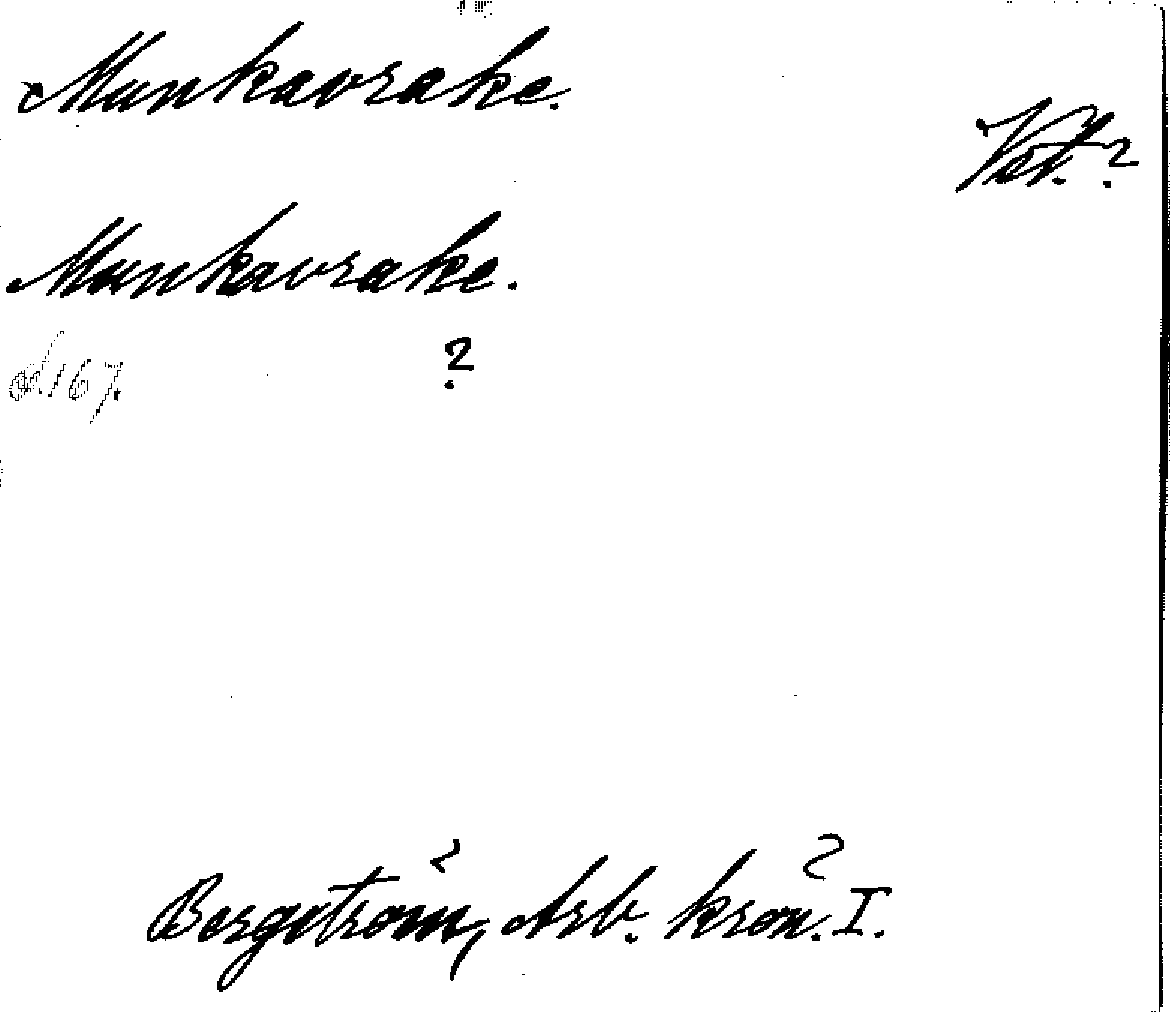 Munkavrake.
Vst.?
Munkavrake.
s. 167. ?
Bergström, Arb. krön. I.